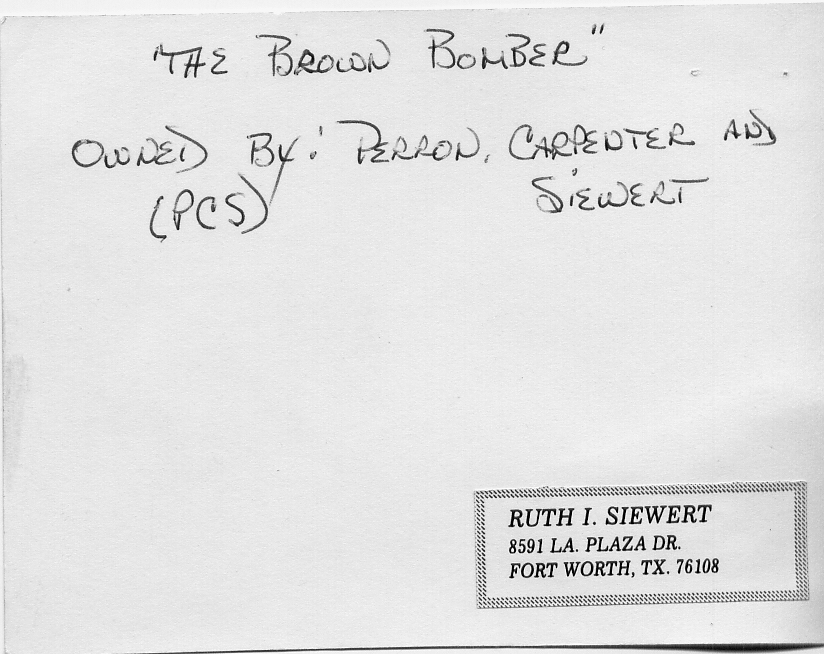 "THE BROWN BOMBER"
OWNED BY: PERRON, CARPENTER AND
(PCS) SIEWERT
RUTH I. SIEWERT
8591 LA. PLAZA DR.
FORT WORTH, TX. 76108